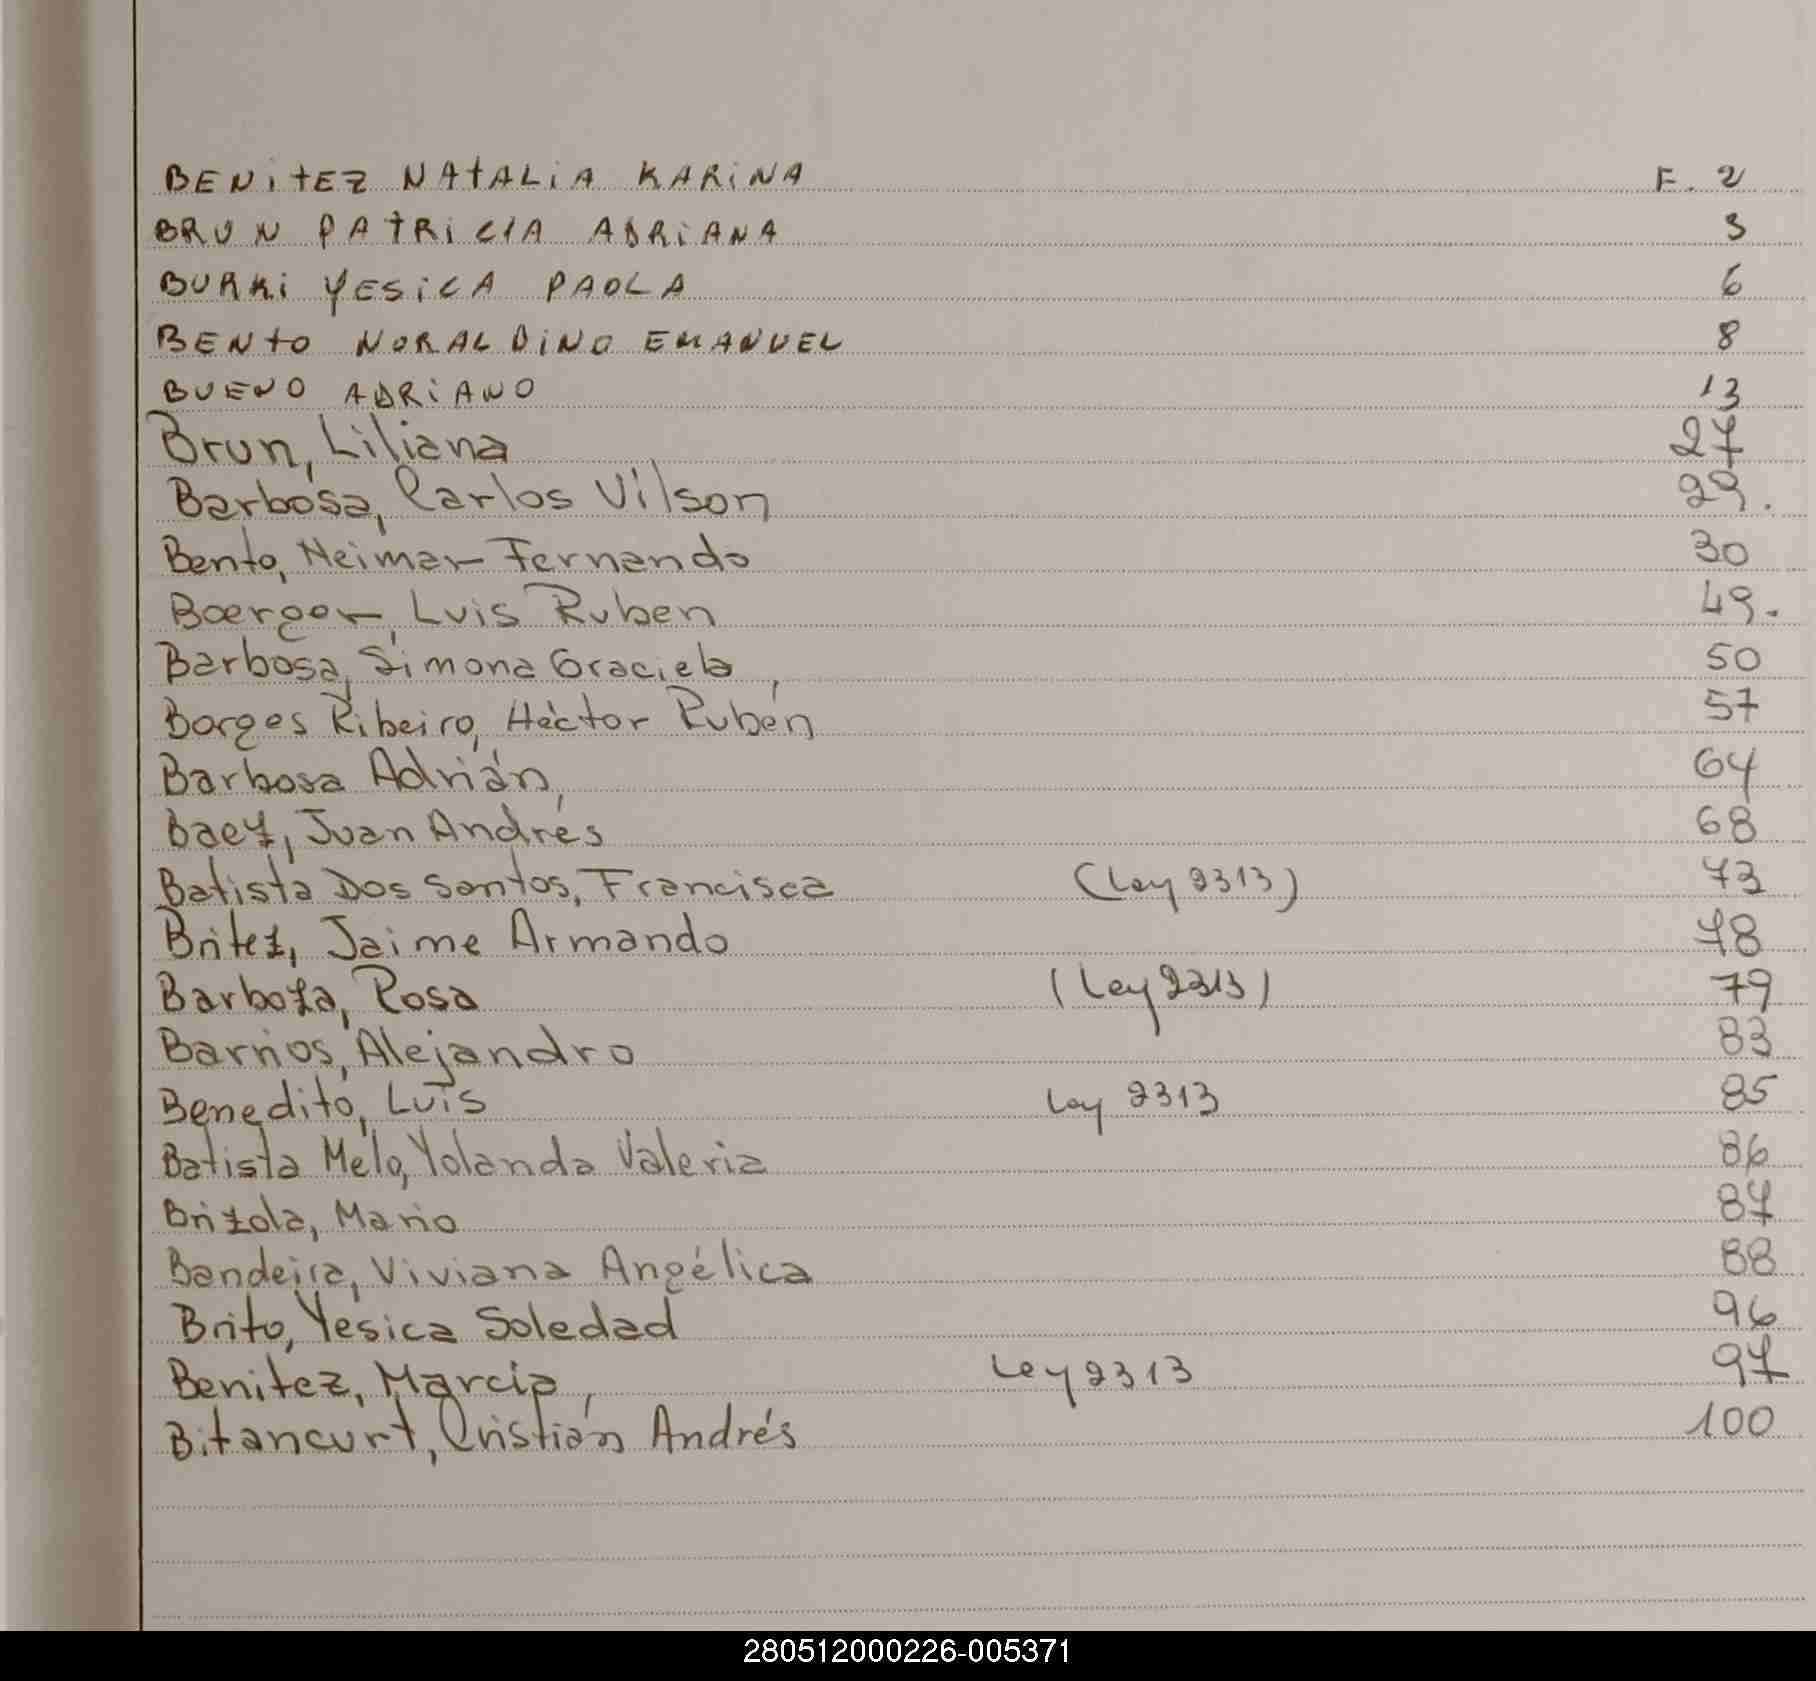 BENITEZ NATALIA KARINA F. 2
BRUN PATRICIA ADRIANA 3
BURKI YESICA PAOLA 6
BENTO NORALDINO EMANUEL 8
BUENO ADRIANO 13
Brun, Liliana 27
Barbosa, Carlos Vilson 29.
Bento, Neimar Fernando 30
Boerger, Luis Ruben 49.
Barbosa, Simona Graciela 50
Borges Ribeiro, Héctor Rubén 57
Barbosa Adrián, 64
Baez, Juan Andrés 68
Batista Dos Santos, Francisca (Ley 2313) 73
Britez, Jaime Armando 78
Barboza, Rosa (Ley 2313) 79
Barrios, Alejandro 83
Benedito, Luis Ley 2313 85
Batista Melo, Yolanda Valeria 86
Brizola, Mario 87
Bandeira, Viviana Angélica 88
Brito, Yésica Soledad 96
Benitez, Marcia Ley 2313 97
Bitancurt, Cristián Andrés 100
280512000226-005371